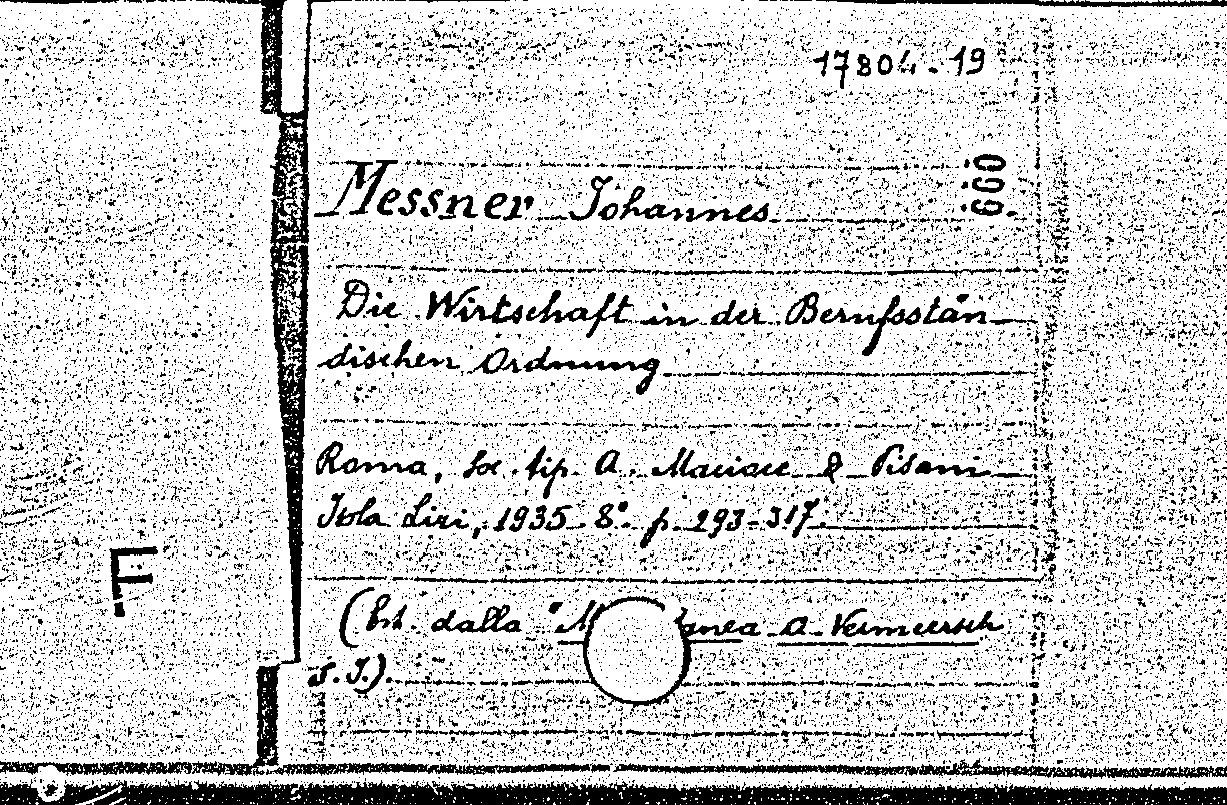 17804.19
660
Messner Johannes
Die Wirtschaft in der Berufsstän-
dischen Ordnung
Roma, Soc. tip. A. Macioce & Pisani
Isola Liri, 1935 8° p. 293-317.
(Est. dalla "M lanea a Vermeersch
S. J.).
F